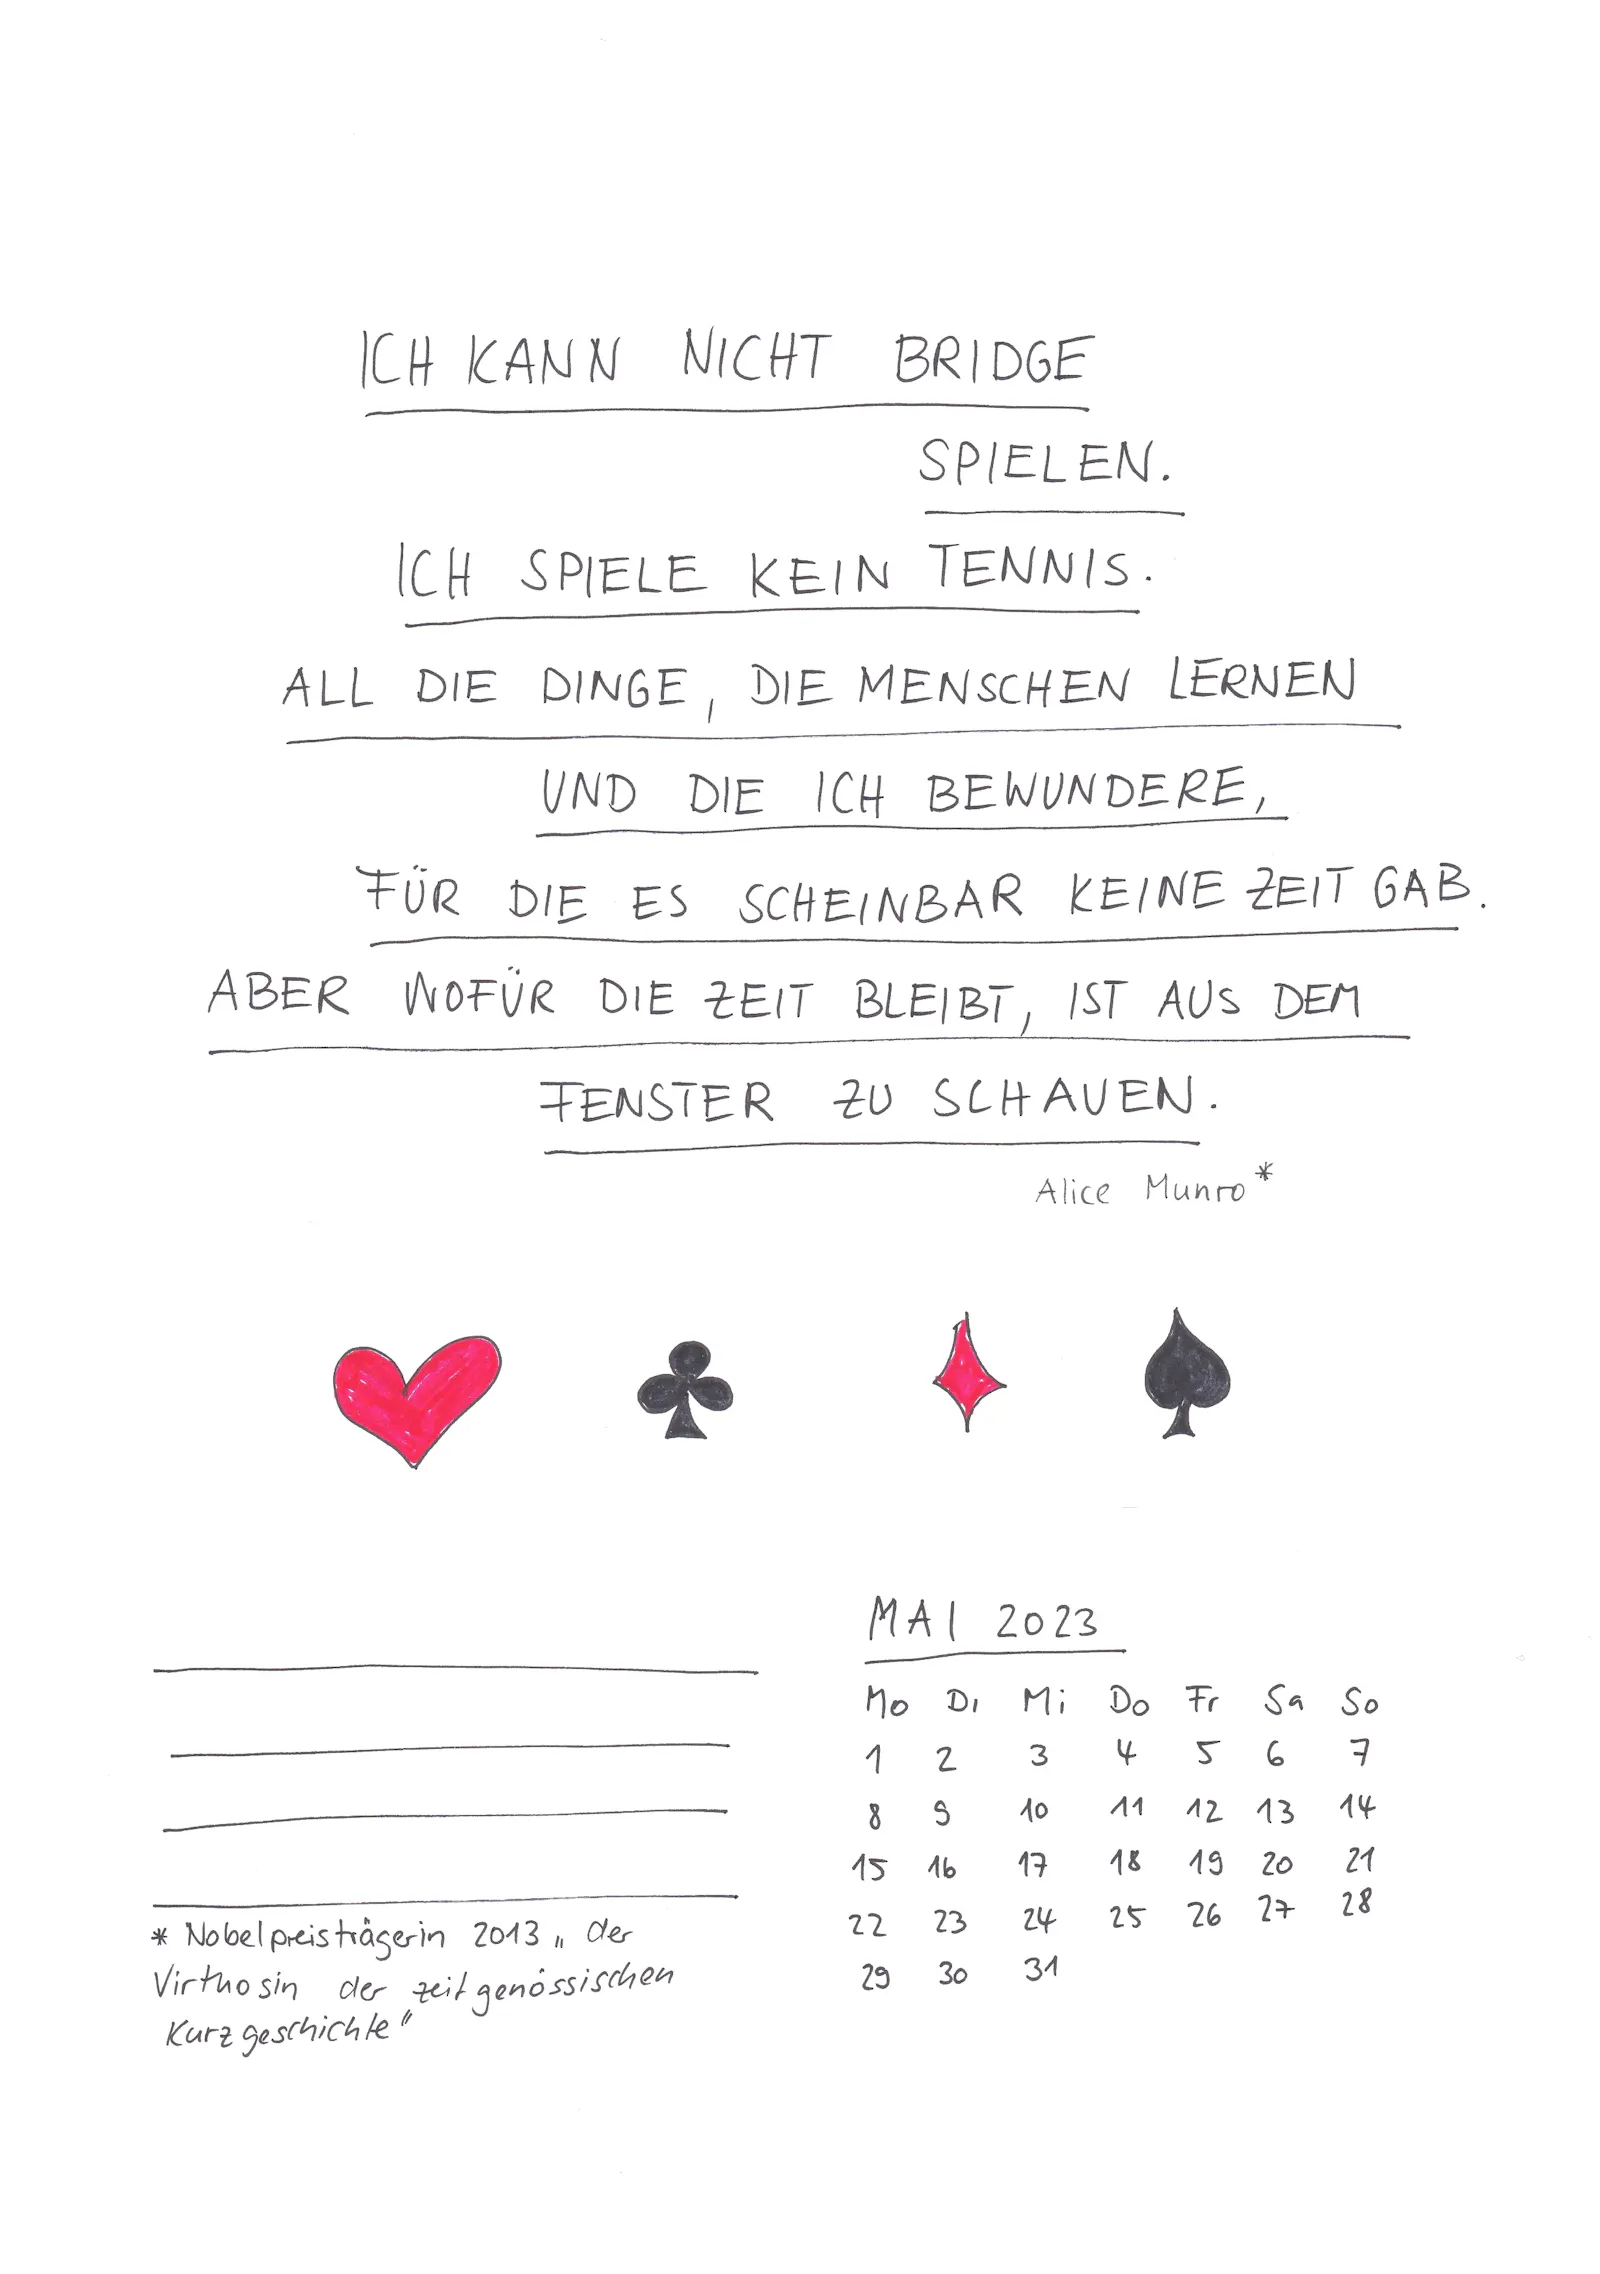 ICH KANN NICHT BRIDGE
SPIELEN.
ICH SPIELE KEIN TENNIS.
ALL DIE DINGE, DIE MENSCHEN LERNEN
UND DIE ICH BEWUNDERE,
FÜR DIE ES SCHEINBAR KEINE ZEIT GAB.
ABER WOFÜR DIE ZEIT BLEIBT, IST AUS DEM
FENSTER ZU SCHAUEN.
Alice Munro*
* Nobelpreisträgerin 2013 „der
Virthosin der zeitgenössischen
Kurzgeschichte"
MAI 2023
Mo Di Mi Do Fr Sa So
1 2 3 4 5 6 7
8 9 10 11 12 13 14
15 16 17 18 19 20 21
22 23 24 25 26 27 28
29 30 31